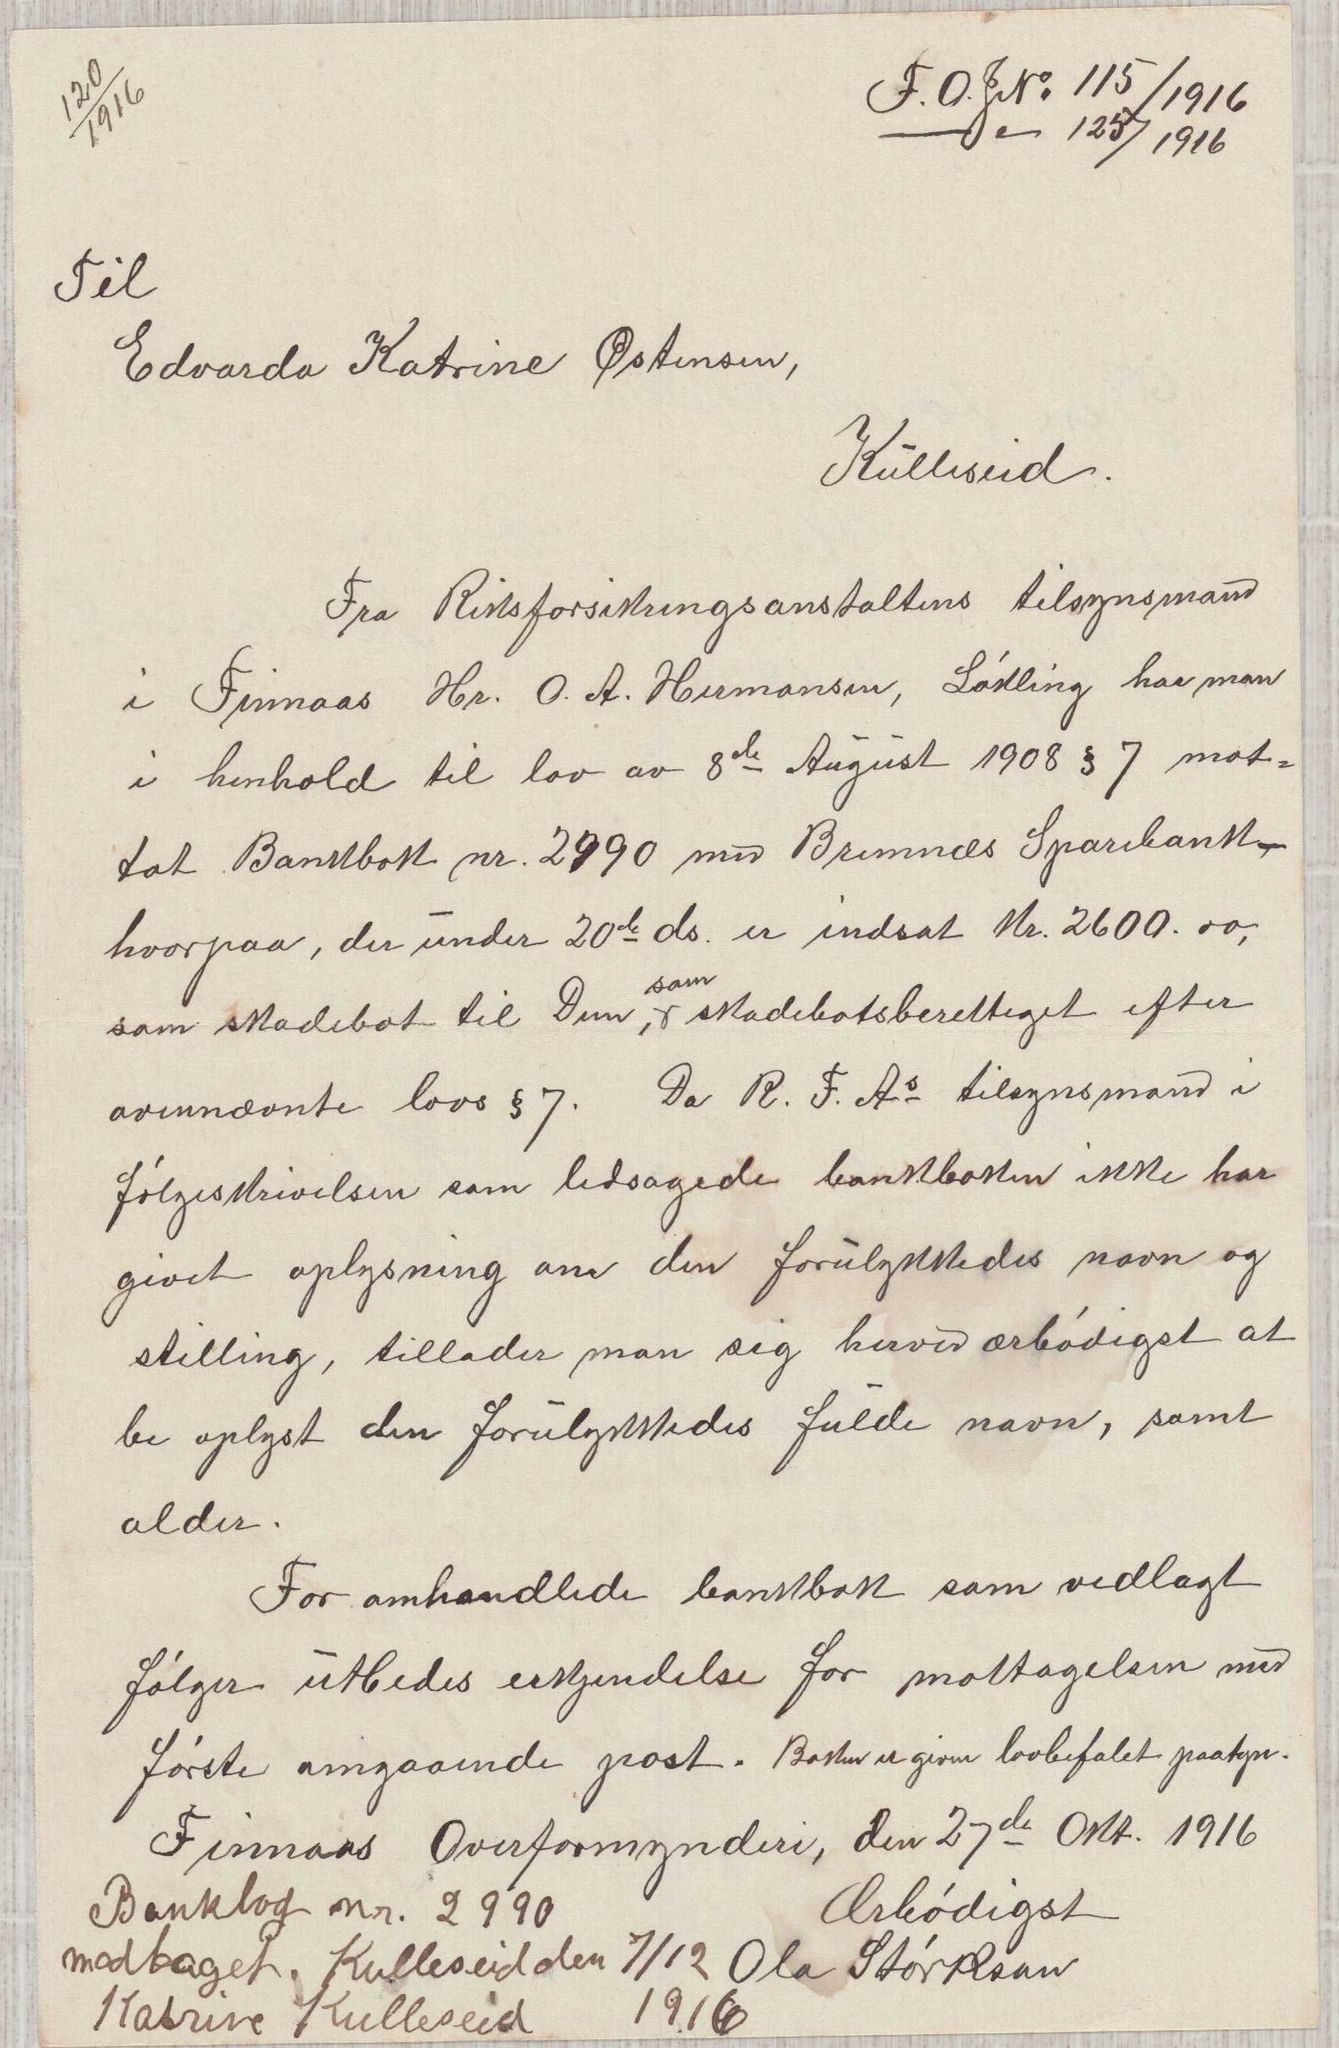 120/1916
F. O. J. No. 115/1916
— " — 125/1916
Til
Edvarda Katrine Østensen,
Kulleseid.
Fra Riksforsikringsanstaltens tilsynsmand
i Finnaas Hr. O. A. Hermansen, Lökling har man
i henhold til lov av 8de August 1908 § 7 mot-
tat Bankbok nr. 2990 med Bremnæs Sparebank
hvorpaa, der under 20de ds. er indsat kr. 2600.00,
som skadebot til Dem, som skadebotsberettiget efter
ovennævnte lovs § 7. Da R. F. As tilsynsmand i
fölgeskrivelsen som ledsagede bankboken ikke har
givet oplysning om den forulykkedes navn og
stilling, tillader man sig herved ærbódigst at
be oplyst den forulykkedes fulde navn, samt
alder.
For omhandlede bankbok som vedlagt
fölger utbedes erkjendelse for mottagelsen med
förste omgaaende post. Boken er given lovbefalet paategn.
Finnaas Overformynderi, den 27de Okt. 1916
Ærbódigst
Ola Störksen
Bankbog nr. 2990
modtaget. Kulleseid den 7/12
1916
Katrine Kulleseid